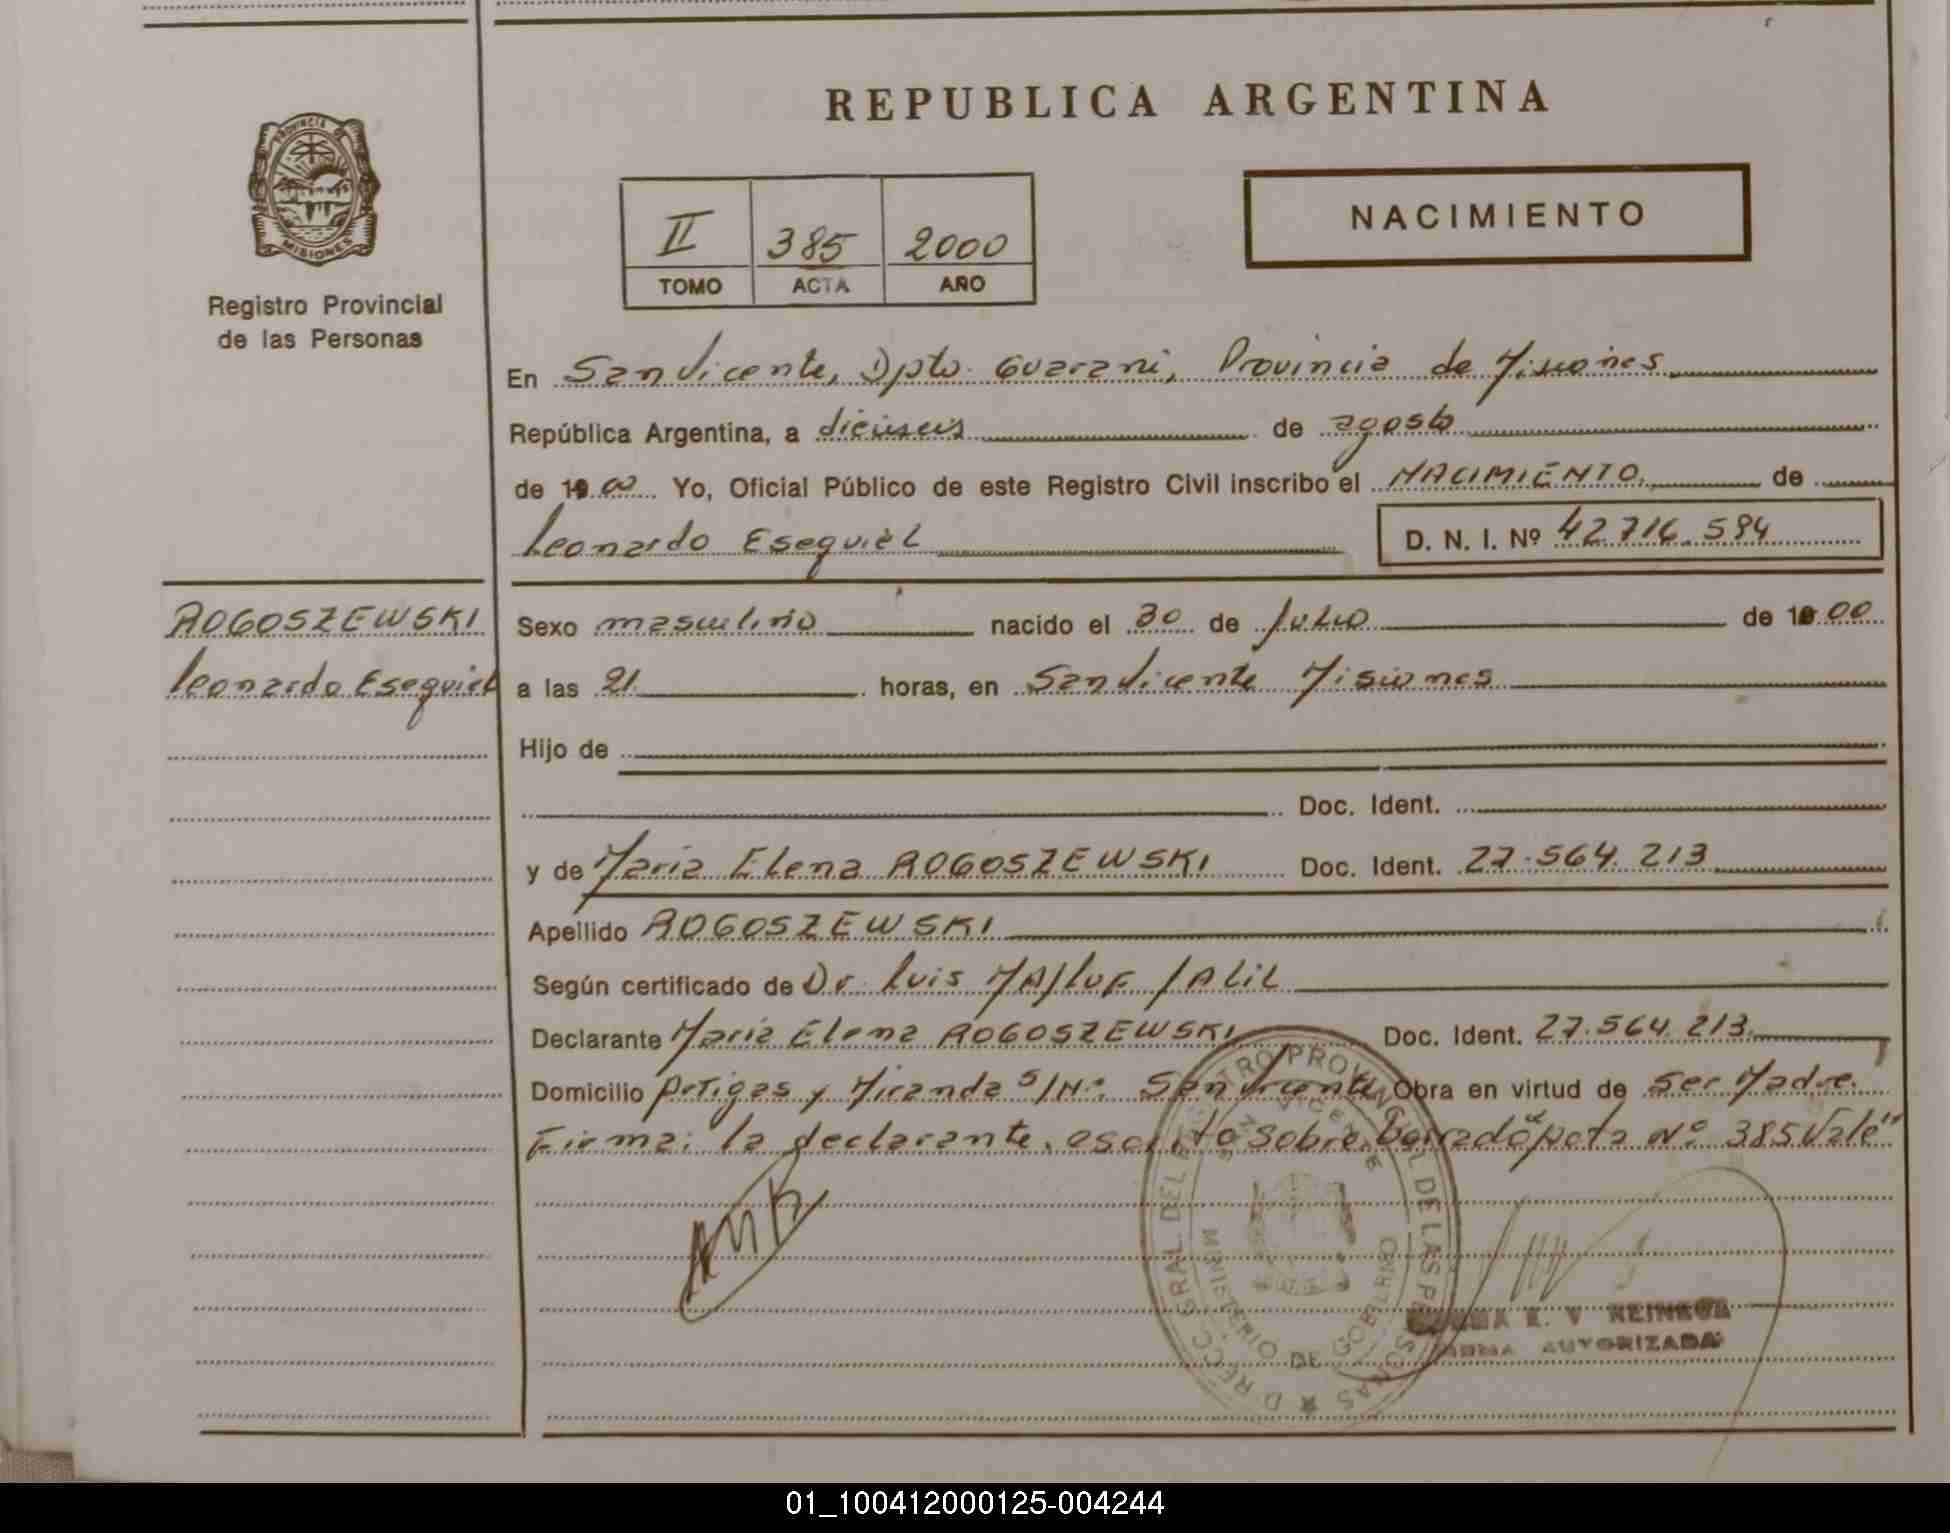 REPUBLICA ARGENTINA
PROVINCIA DE
MISIONES
Registro Provincial
de las Personas
NACIMIENTO
II 385 2000
TOMO ACTA AÑO
En San Vicente, Dpto. Guarani, Provincia de Misiones
República Argentina, a dieciseis de agosto
de 19 00 Yo, Oficial Público de este Registro Civil inscribo el NACIMIENTO. de
Leonardo Esequiel
D. N. I. Nº 42.716.594
ROGOSZEWSKI
Leonardo Esequiel
Sexo masculino nacido el 30 de Julio de 19 00
a las 21 horas, en San Vicente Misiones
Hijo de
Doc. Ident.
y de Maria Elena ROGOSZEWSKI Doc. Ident. 27.564.213
Apellido ROGOSZEWSKI
Según certificado de Dr. Luis
Declarante Maria Elena ROGOSZEWSKI Doc. Ident. 27.564.213
Domicilio Artigas y Miranda S/Nº. San Vicente Obra en virtud de ser Madre.
Firma: la declarante. escrito sobre borrado "acta Nº 385 Vale"
DIRECC. GRAL DEL REGISTRO PROVINCIAL DE LAS PERSONAS
SAN VICENTE
MINISTERIO DE GOBIERNO
V REINECK
FIRMA AUTORIZADA
01_100412000125-004244